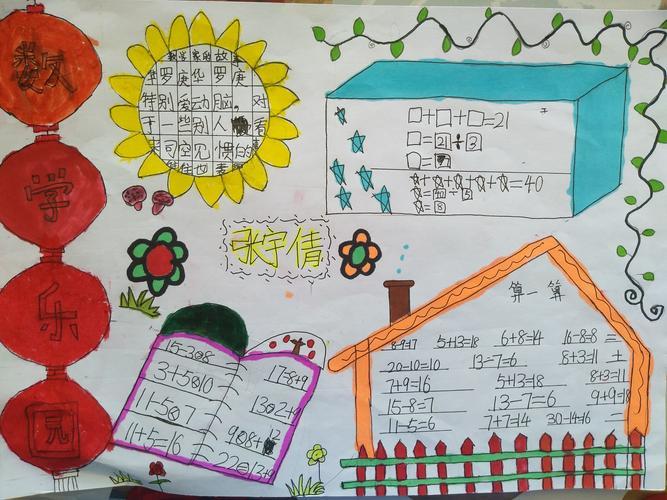 数
学
乐
园
数学家的故事
华罗庚华罗庚
特别爱动脑。对
于一些别人看
来司空见惯的
□+□+□=21
□=21÷3
□=7
☆+☆+☆+☆+☆=40
☆=40÷5
☆=8
张宇倩
算一算
8-9=17 5+13=18 6+8=14 16-8=8
20-10=10 13-7=6 8+3=11
7+9=16 5+13=18 8+3=11
15-8=7 13-7=6 9+9=18
11-5=6 7+7=14 30-14=16
15-3○8
3+5○10
11-5○7
11+5=16
17=8+9
13○2+9
9○8+12
22○13+9